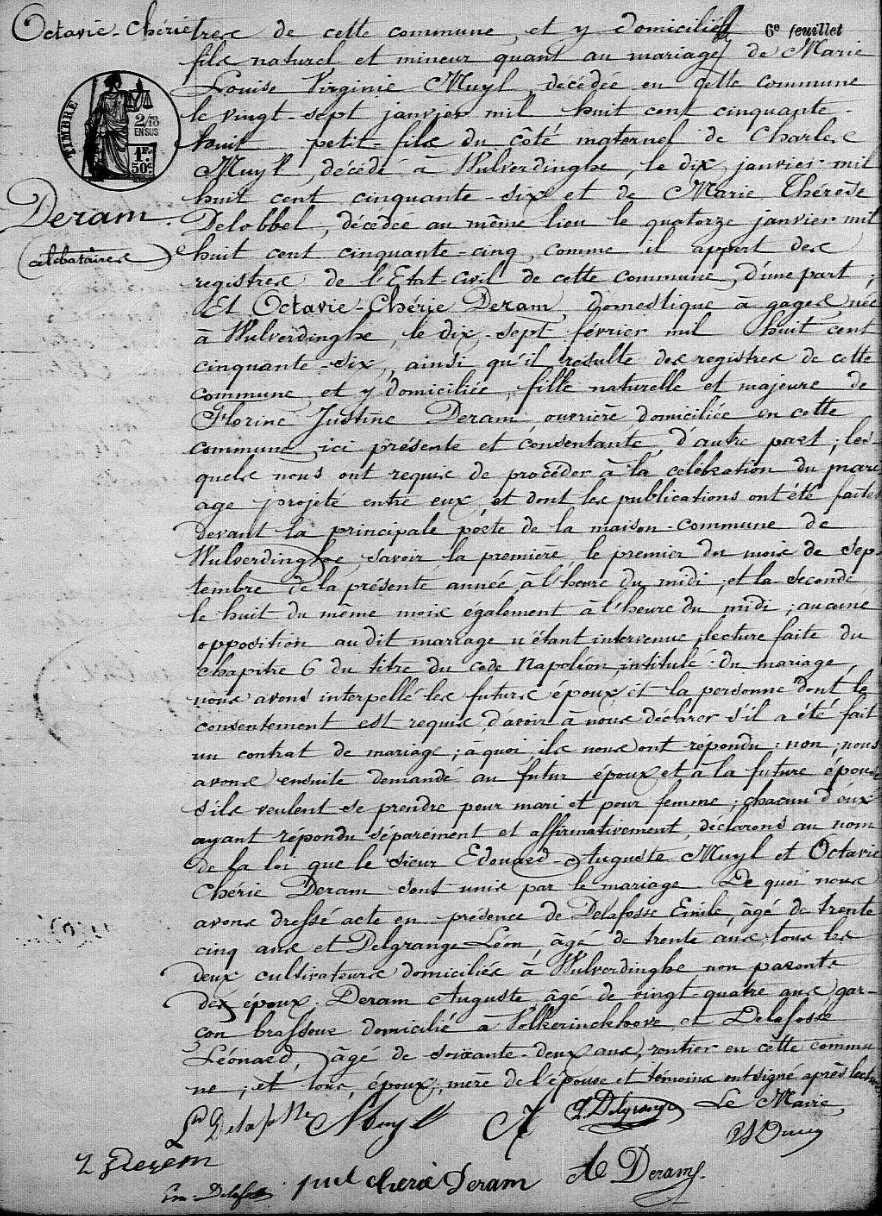 Octavie-Chérie
6e feuillet
TIMBRE
2/10
EN SUS
1F.
50c
Deram
célibataires
tres de cette commune, et y domicilié,
fils naturel et mineur quant au mariage, de Marie
Louise Virginie Muyl, décédée en cette commune
le vingt-sept janvier mil huit cent cinquante
huit petit-fils du côté maternel de Charles
Muyl, décédé à Wulverdinghe, le dix janvier mil
huit cent cinquante-six et de Marie Thérèse
Delobbel, décédée au même lieu le quatorze janvier mil
huit cent cinquante-cinq, comme il appert des
registres de l'Etat-Civil de cette commune, d'une part;
Et Octavie-Chérie Deram, domestique à gages née
à Wulverdinghe, le dix-sept février mil huit cent
cinquante-six, ainsi qu'il résulte des registres de cette
commune, et y domiciliée, fille naturelle et majeure de
Florine Justine Deram ouvrière domiciliée en cette
commune, ici présente et consentante, d'autre part; les-
quels nous ont requis de procéder à la célébration du mari
age projeté entre eux, et dont les publications ont été faites
devant la principale porte de la maison-commune de
Wulverdinghe, savoir, la première, le premier du mois de sep-
tembre de la présente année à l'heure du midi, et la seconde
le huit du même mois également à l'heure du midi; aucune
opposition audit mariage n'étant intervenue, lecture faite du
chapitre 6 du titre du code Napoléon, intitulé: du mariage,
nous avons interpellé les futurs époux et la personne dont le
consentement est requis, d'avoir à nous déclarer s'il a été fait
un contrat de mariage; à quoi ils nous ont répondu: non; nous
avons ensuite demandé au futur époux et à la future épouse
s'ils veulent se prendre pour mari et pour femme; chacun d'eux
ayant répondu séparément et affirmativement, déclarons au nom
de la loi que le sieur Edouard-Auguste Muyl et Octavie
Chérie Deram sont unis par le mariage. De quoi nous
avons dressé acte en présence de Delafosse Emile, âgé de trente
cinq ans et Delgrange Léon, âgé de trente ans tous les
deux cultivateurs domiciliés à Wulverdinghe non parents
des époux. Deram Auguste, âgé de vingt-quatre ans, gar-
çon brasseur domicilié à Volkerinckhove, et Delafosse
Léonard, âgé de soixante-deux ans, rentier en cette commu
ne; et tous, époux, mère de l'épouse et témoins ont signé après lecture
Delafosse Muyl Delgrange Le Maire
Deram
Em. Delafosse cherie Deram A Deram